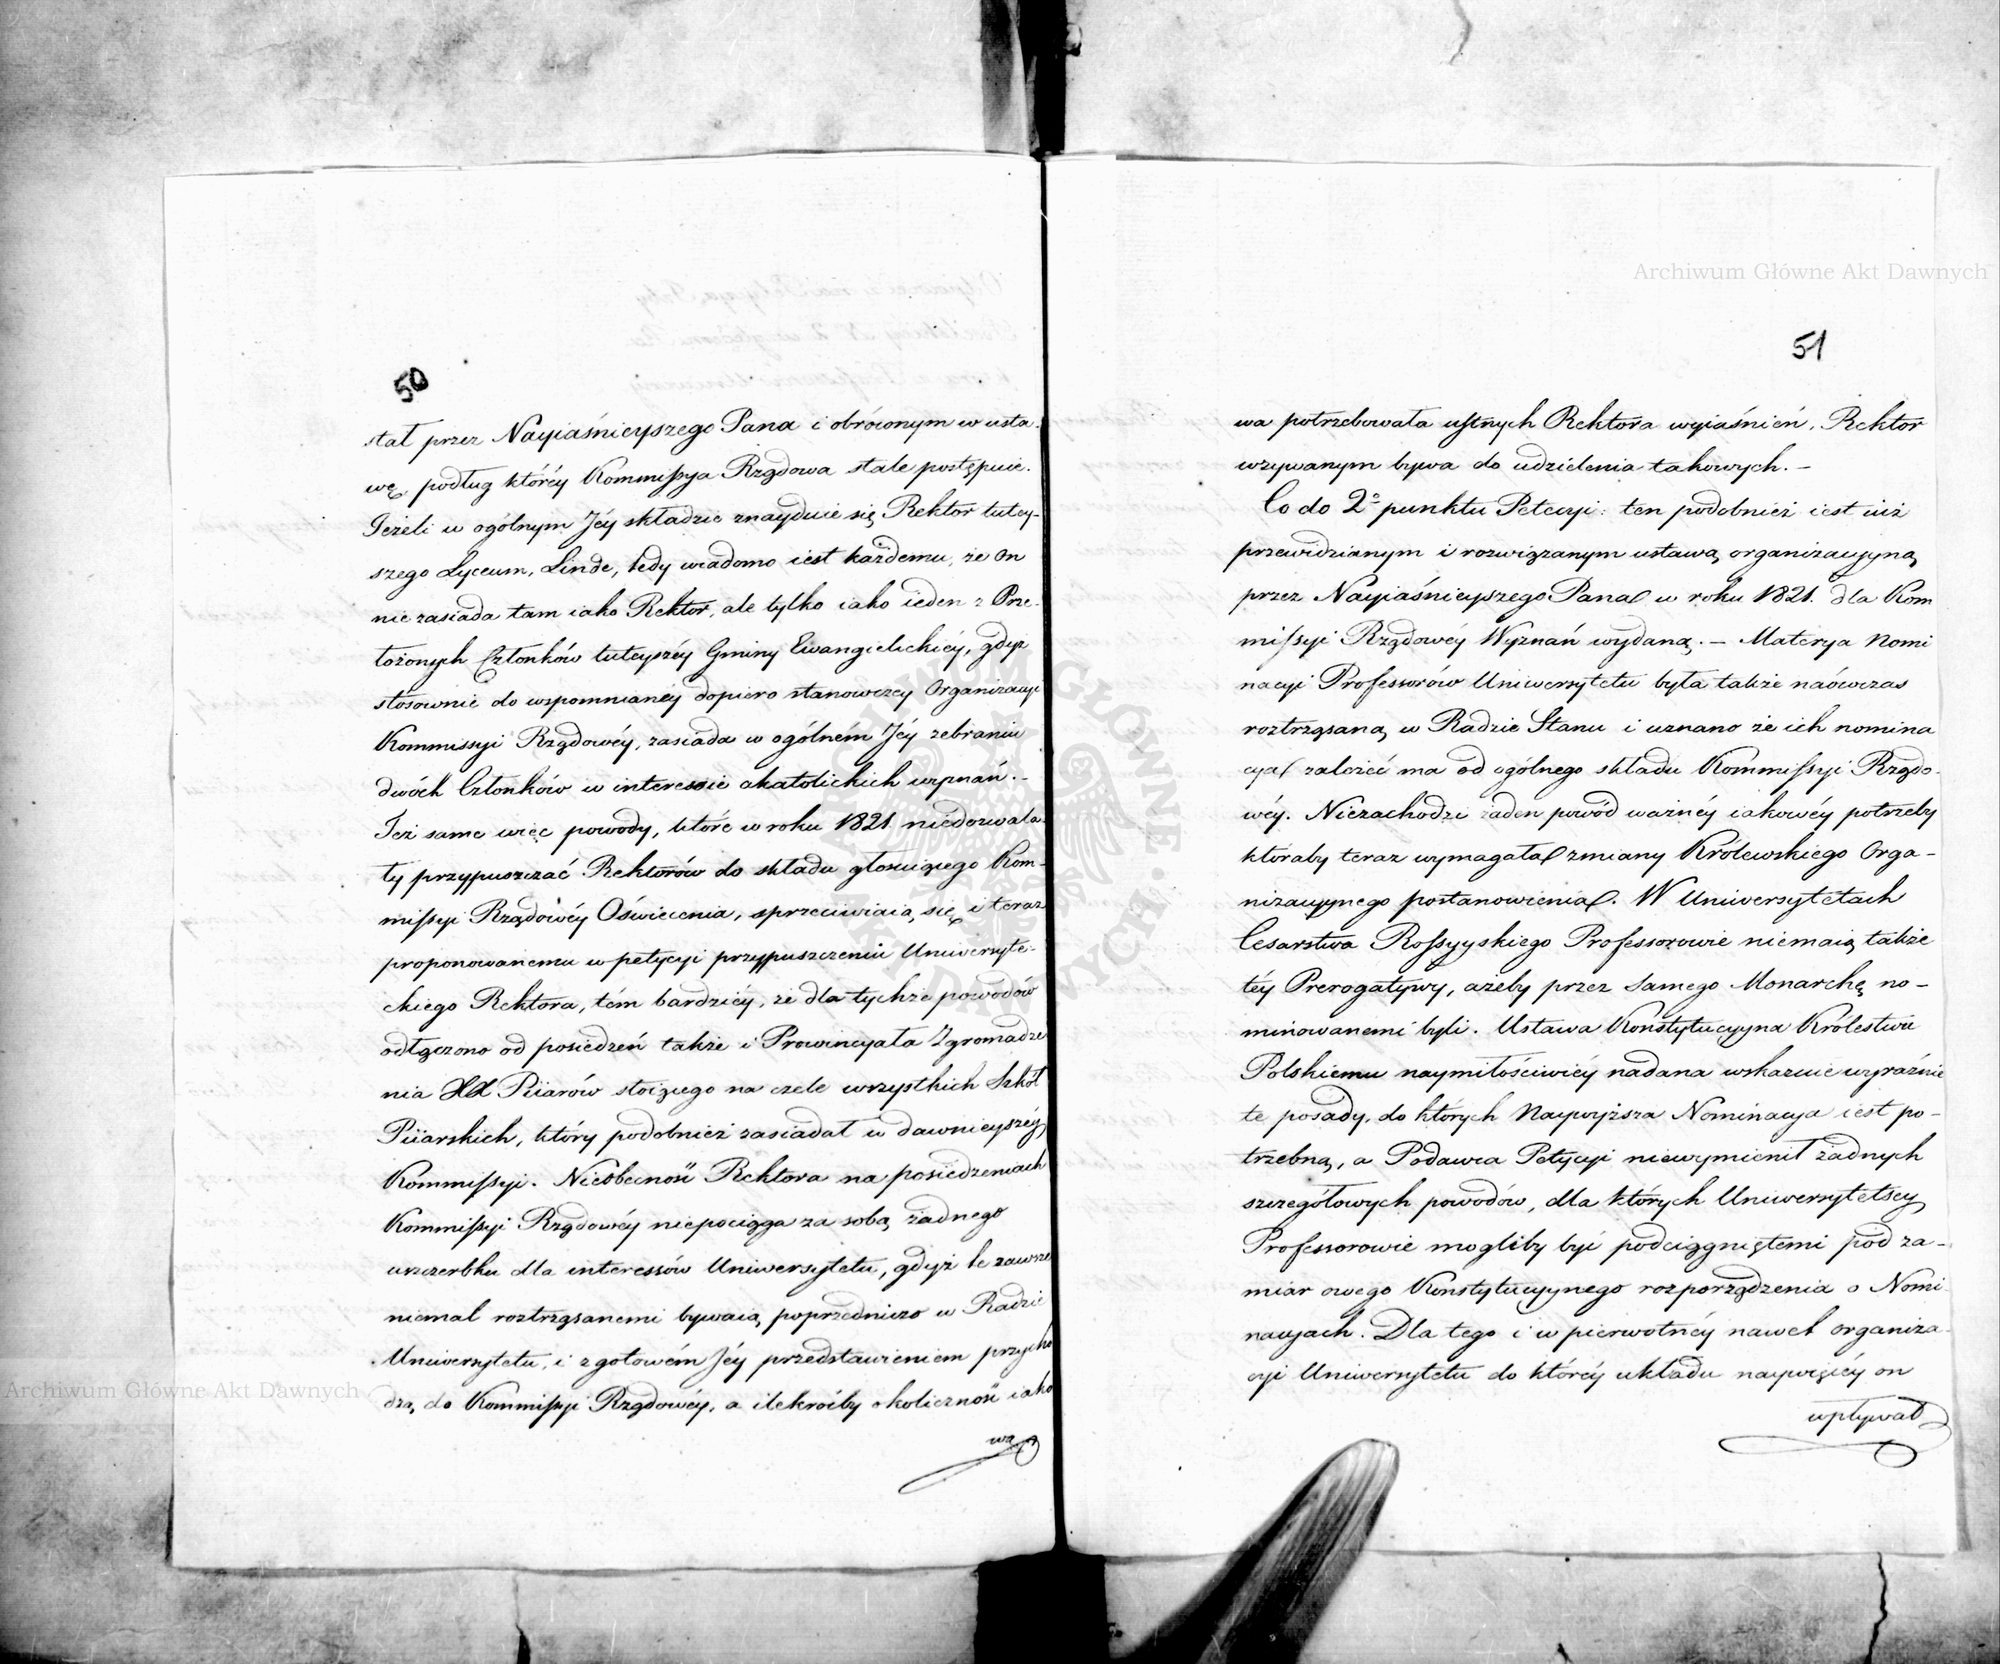 50
stał przez Nayiaśnieyszego Pana i obróconym w usta-
wę, podług któréy Kommissya Rządowa stale postępuie.
Jeżeli w ogólnym Jéy składzie znayduie się Rektor tutey-
szego Lyceum, Linde, tedy wiadomo iest każdemu, że on
nie zasiada tam iako Rektor, ale tylko iako ieden z Prze-
łożonych Członków tuteyszéy Gminy Ewangielickiéy, gdyż
stosownie do wspomnianéy dopiero stanowczey Organizacyi
Kommissyi Rządowéy, zasiada w ogólném Jéy zebraniu
dwóch Członków w interessie akatolickich wyznań. -
Też same więc powody, które w roku 1821 niedozwala-
ły przypuszczać Rektorów do składu głosuiącego Kom-
missyi Rządowéy Oświecenia, sprzeciwiaią się i teraz
proponowanemu w petycyi przypuszczeniu Uniwersyte-
ckiego Rektora, tém bardziéy, że dla tychże powodów
odłączono od posiedzeń także i Prowincyała Zgromadze
nia XX Piiarów stoiącego na czele wszystkich Szkół
Piiarskich, który podobnież zasiadał w dawnieyszéy
Kommissyi. Nieobecność Rektora na posiedzeniach
Kommissyi Rządowéy niepociąga za sobą żadnego
uszczerbku dla interessów Uniwersytetu, gdyż te zawsze
niemal roztrząsanemi bywaią poprzedniczo w Radzie
Uniwersytetu, i z gotowém Jéy przedstawieniem przycho
dzą do Kommissyi Rządowéy, a ilekroćby okoliczność iako
wa
51
wa potrzebowała ustnych Rektora wyiaśnień, Rektor
wzywanym bywa do udzielenia takowych. -
Co do 2º punktu Petecyi: ten podobnież iest iuż
przewidzianym i rozwiązanym ustawą organizacyyną
przez Nayiaśnieyszego Pana w roku 1821. dla Kom
missyi Rządowéy Wyznań wydaną. - Materya Nomi
nacyi Professorów Uniwersytetu była także naówczas
roztrząsaną w Radzie Stanu i uznano że ich nomina
cya zależeć ma od ogólnego składu Kommissyi Rządo-
wéy. Niezachodzi żaden powód ważnéy iakowéy potrzeby
któraby teraz wymagała zmiany Królewskiego Orga-
nizacyynego postanowienia. W Uniwersytetach
Cesarstwa Rossyyskiego Professorowie niemaią także
téy Prerogatywy, ażeby przez Samego Monarchę no-
minowanemi byli. Ustawa Konstytucyyna Królestwu
Polskiemu naymiłościwiéy nadana wskazuie wyraźnie
te posady, do których Naywyższa Nominacya iest po-
trzebną, a Podawca Petycyi niewymienił żadnych
szczegółowych powodów, dla których Uniwersyteccy
Professorowie mogliby być podciągniętemi pod za-
miar owego Konstytucyynego rozporządzenia o Nomi
nacyach. Dla tego i w pierwotnéy nawet organiza-
cyi Uniwersytetu do któréy układu naywięcéy on
wpływał
Archiwum Główne Akt Dawnych
Archiwum Główne Akt Dawnych